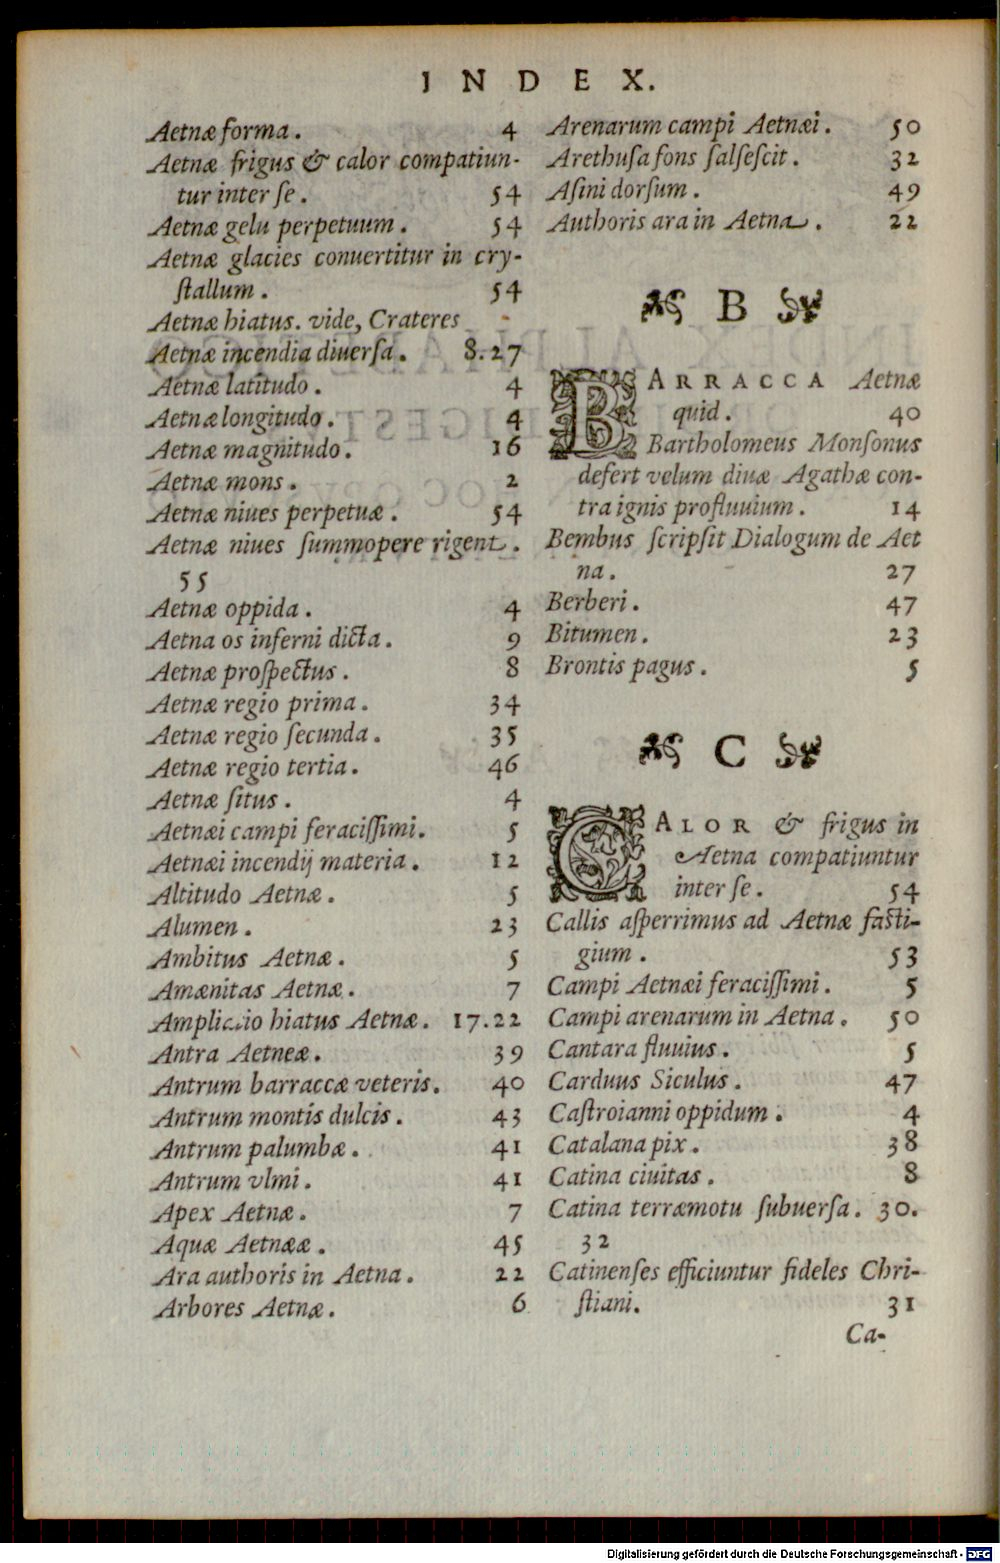 INDEX.
Aetnæ forma. 4
Aetnæ frigus & calor compatiun-
tur inter ſe. 54
Aetnæ gelu perpetuum. 54
Aetnæ glacies conuertitur in cry-
ſtallum. 54
Aetnæ hiatus. vide, Crateres
Aetnæ incendia diuerſa. 8.27
Aetnæ latitudo. 4
Aetnæ longitudo. 4
Aetnæ magnitudo. 16
Aetnæ mons. 2
Aetnæ niues perpetuæ. 54
Aetnæ niues ſummopere rigent.
55
Aetnæ oppida. 4
Aetna os inferni dicta. 9
Aetnæ proſpectus. 8
Aetnæ regio prima. 34
Aetnæ regio ſecunda. 35
Aetnæ regio tertia. 46
Aetnæ ſitus. 4
Aetnæi campi feraciſſimi. 5
Aetnæi incendij materia. 12
Altitudo Aetnæ. 5
Alumen. 23
Ambitus Aetnæ. 5
Amænitas Aetnæ. 7
Ampliatio hiatus Aetnæ. 17.22
Antra Aetneæ. 39
Antrum barraccæ veteris. 40
Antrum montis dulcis. 43
Antrum palumbæ. 41
Antrum vlmi. 41
Apex Aetnæ. 7
Aquæ Aetnææ. 45
Ara authoris in Aetna. 22
Arbores Aetnæ. 6
Arenarum campi Aetnæi. 50
Arethuſa fons ſalſeſcit. 32
Aſini dorſum. 49
Authoris ara in Aetna. 22
B
BARRACCA Aetnæ
quid. 40
Bartholomeus Monſonus
defert velum diuæ Agathæ con-
tra ignis profluuium. 14
Bembus ſcripſit Dialogum de Aet
na. 27
Berberi. 47
Bitumen. 23
Brontis pagus. 5
C
CALOR & frigus in
Aetna compatiuntur
inter ſe. 54
Callis aſperrimus ad Aetnæ faſti-
gium. 53
Campi Aetnæi feraciſſimi. 5
Campi arenarum in Aetna. 50
Cantara fluuius. 5
Carduus Siculus. 47
Caſtroianni oppidum. 4
Catalana pix. 38
Catina ciuitas. 8
Catina terræmotu ſubuerſa. 30.
32
Catinenſes efficiuntur fideles Chri-
ſtiani. 31
Ca-
Digitalisierung gefördert durch die Deutsche Forschungsgemeinschaft - DFG